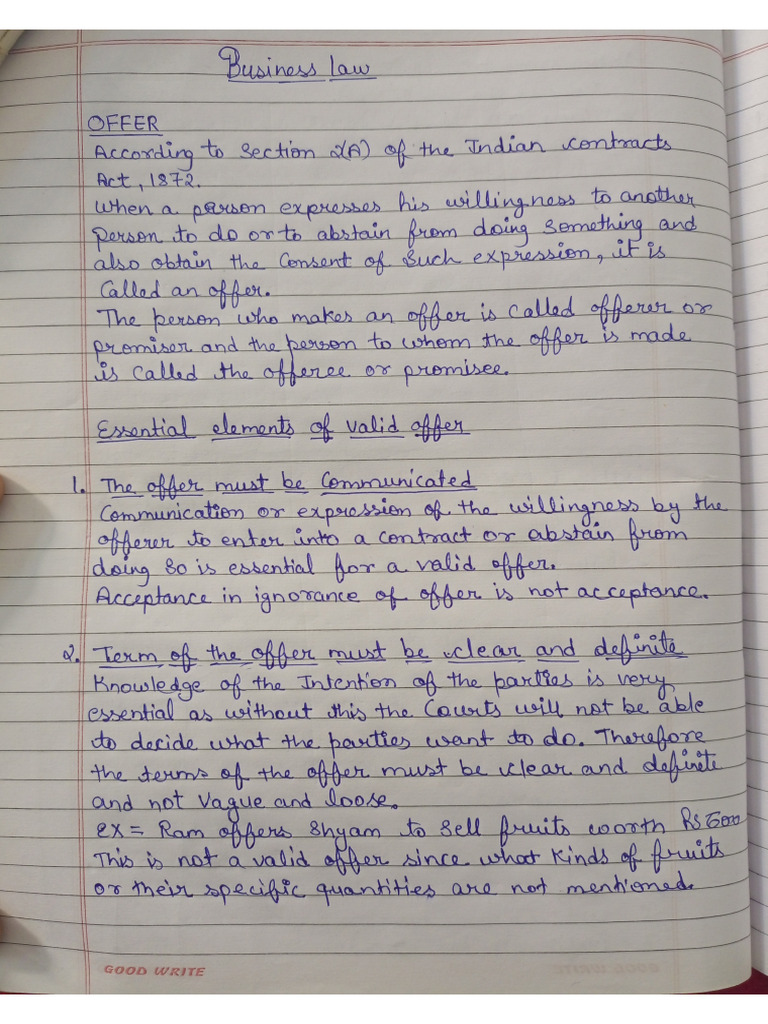 Business Law
OFFER
According to Section 2(A) of the Indian Contracts
Act, 1872.
When a person expresses his willingness to another
person to do or to abstain from doing something and
also obtain the Consent of such expression, it is
Called an offer.
The person who makes an offer is called offerer or
promiser and the person to whom the offer is made
is called the offeree or promisee.
Essential elements of valid offer
1. The offer must be Communicated
Communication or expression of the willingness by the
offerer to enter into a contract or abstain from
doing so is essential for a valid offer.
Acceptance in ignorance of offer is not acceptance.
2. Term of the offer must be clear and definite
Knowledge of the Intention of the parties is very
essential as without this the Courts will not be able
to decide what the parties want to do. Therefore
the terms of the offer must be clear and definite
and not vague and loose.
ex = Ram offers Shyam to sell fruits worth Rs
This is not a valid offer since what kinds of fruits
or their specific quantities are not mentioned.
GOOD WRITE